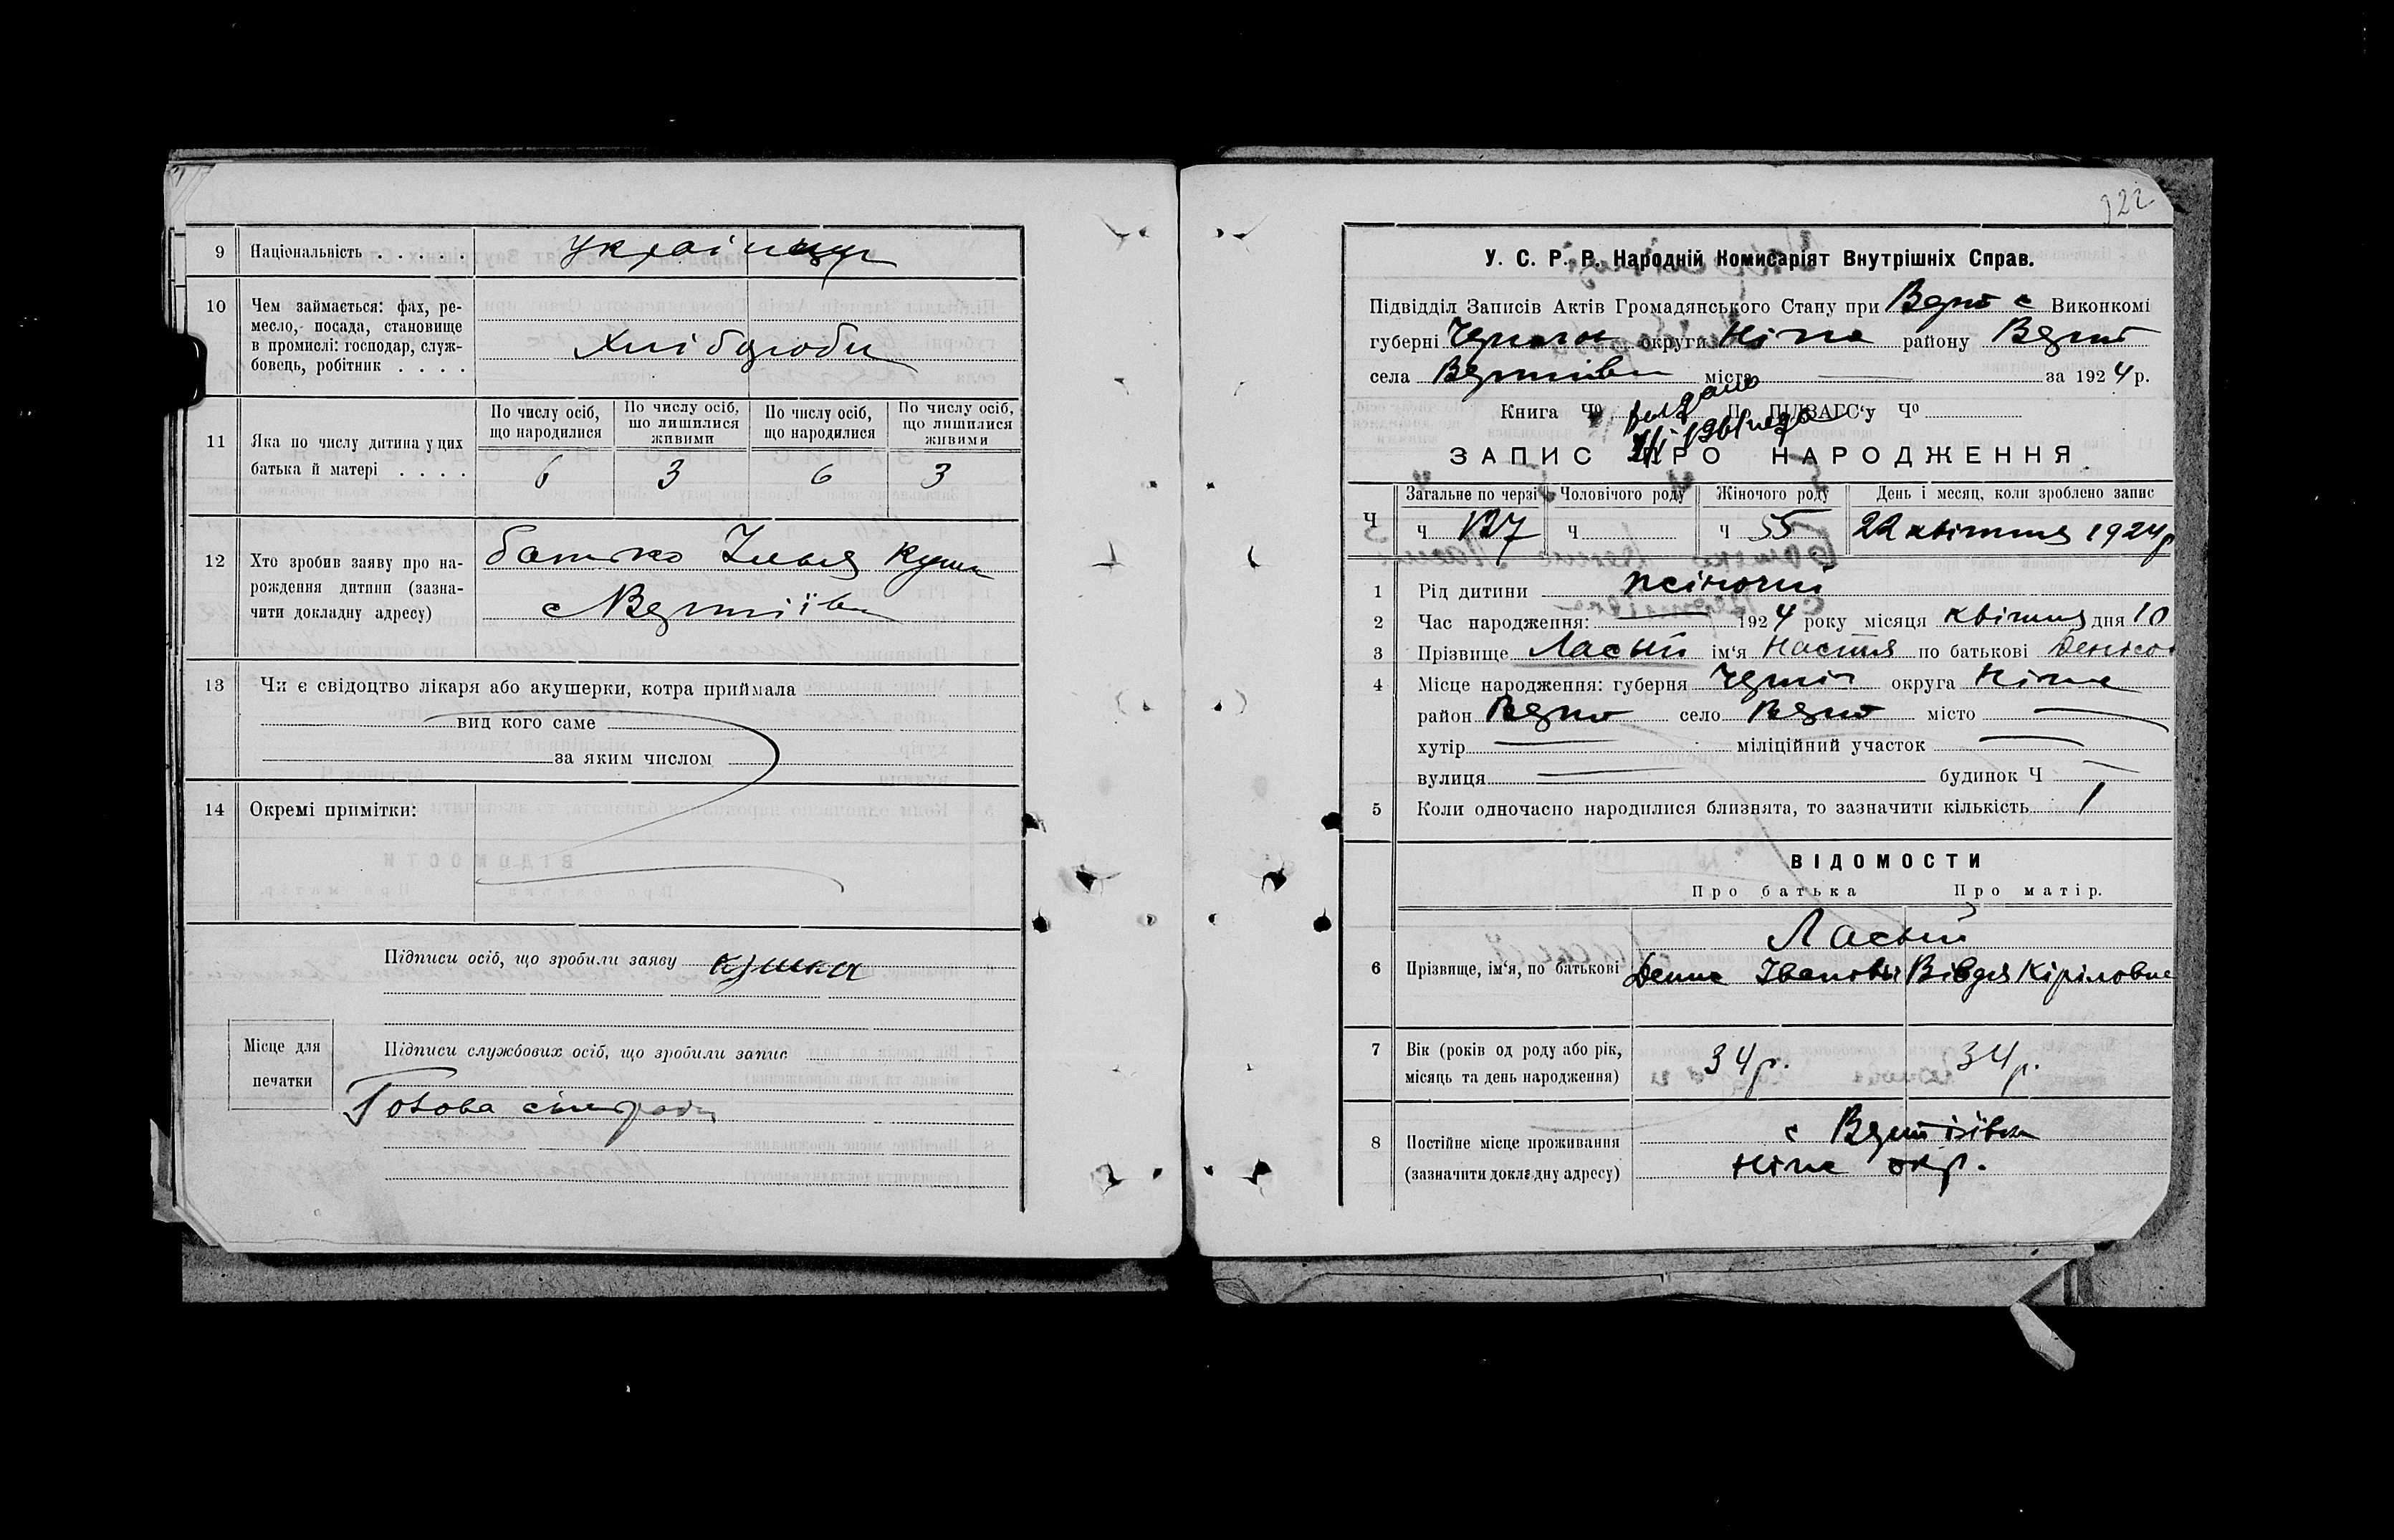 9 Національність . . . . . українці
10 Чем займається: фах, ре-
месло, посада, становище
в промислі: господар, служ-
бовець, робітник . . . .
Хліборобы
11 Яка по числу дитина у цих
батька й матері . . . .
По числу осіб, що народилися
По числу осіб, що лишилися живими
По числу осіб, що народилися
По числу осіб, що лишилися живими
6 3 6 3
12 Хто зробив заяву про на-
рождення дитини (зазна-
чити докладну адресу)
батько Ілья
с Вертіївка
13 Чи є свідоцтво лікаря або акушерки, котра приймала
вид кого саме
за яким числом
14 Окремі примітки:
Підписи осіб, що зробили заяву
Місце для
печатки
Підписи службових осіб, що зробили запис
Голова сільради
322
У. С. Р. Р. Народній Комисаріят Внутрішніх Справ.
Підвідділ Записів Актів Громадянського Стану при Верт с Виконкомі
губерні Черніг округи Ніжн району Верт
села Вертіївки міста — за 1924 р.
Книга Ч⁰ ПІДЗАГС'у Ч⁰
ЗАПИС ПРО НАРОДЖЕННЯ
Ч
Загальне по черзі Чоловічого роду Жіночого роду День і месяц, коли зроблено запис
ч 127 ч ч 55 22 квітня 1924р
1 Рід дитини жіночий
2 Час народження: 1924 року місяця квітня дня 10
3 Прізвище Ласый ім'я Настя по батькові Денисо
4 Місце народження: губерня Черніг округа Ніжн
район Верт село Верт місто —
хутір — міліційний участок —
вулиця — будинок Ч —
5 Коли одночасно народилися близнята, то зазначити кількість 1
ВІДОМОСТИ
Про батька Про матір.
Ласый
6 Прізвище, ім'я, по батькові Денис Іванович Вівдя Кіріловна
7 Вік (років од роду або рік,
місяць та день народження)
34 р. 34 р.
8 Постійне місце проживання
(зазначити докладну адресу)
с Вертіївка
Ніжн окр.